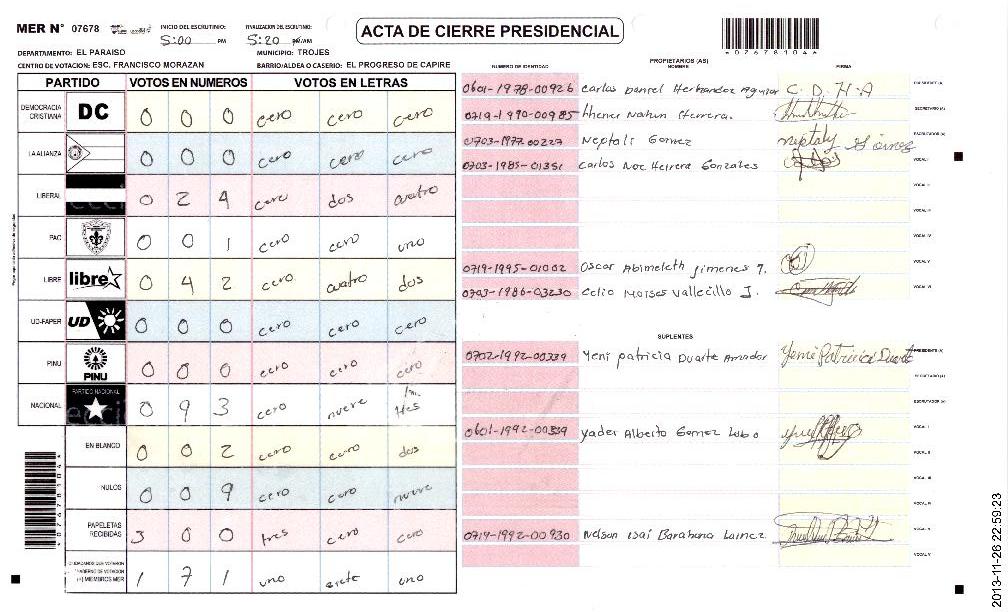 MER N° 07678 INICIO DEL ESCRUTINIO: 5:00 PM FINALIZACION DEL ESCRUTINIO: 5:20 PM/AM
ACTA DE CIERRE PRESIDENCIAL
*07678104*
DEPARTAMENTO: EL PARAISO MUNICIPIO: TROJES
CENTRO DE VOTACION: ESC. FRANCISCO MORAZAN BARRIO/ALDEA O CASERIO: EL PROGRESO DE CAPIRE
PARTIDO VOTOS EN NUMEROS VOTOS EN LETRAS
DEMOCRACIA CRISTIANA DC 0 0 0 cero cero cero
LA ALIANZA 0 0 0 cero cero cero
LIBERAL 0 2 4 cero dos cuatro
PAC 0 0 1 cero cero uno
LIBRE libre 0 4 2 cero cuatro dos
UD-FAPER UD 0 0 0 cero cero cero
PINU PINU 0 0 0 cero cero cero
NACIONAL PARTIDO NACIONAL 0 9 3 cero nueve tres
EN BLANCO 0 0 2 cero cero dos
NULOS 0 0 9 cero cero nueve
PAPELETAS RECIBIDAS 3 0 0 tres cero cero
CIUDADANOS QUE VOTARON CUADERNO DE VOTACION (+) MIEMBROS MER 1 7 1 uno siete uno
PROPIETARIOS (AS)
NUMERO DE IDENTIDAD NOMBRE FIRMA
0601-1978-00926 Carlos Daniel Hernandez Aguilar C. D. H-A PRESIDENTE (A)
0719-1990-00985 Nahun Herrera. SECRETARIO (A)
0703-1977-00227 Neptali Gomez neptaly ESCRUTADOR (A)
0703-1985-01351 Carlos Noe Herrera Gonzales VOCAL I
VOCAL II
VOCAL III
VOCAL IV
0719-1995-01002 Oscar Abimeleth Jimenes VOCAL V
0703-1986-03230 Celio Moises Vallecillo J. VOCAL VI
SUPLENTES
0702-1992-00339 Yeni patricia Duarte Amador Yeni Patricia Duarte PRESIDENTE (A)
SECRETARIO (A)
ESCRUTADOR (A)
0601-1992-00339 Yader Alberto Gomez Lobo VOCAL I
VOCAL II
VOCAL III
VOCAL IV
0719-1992-00930 Nelson Isai Barahona Lainez VOCAL V
*07678104*
2013-11-26 22:59:23